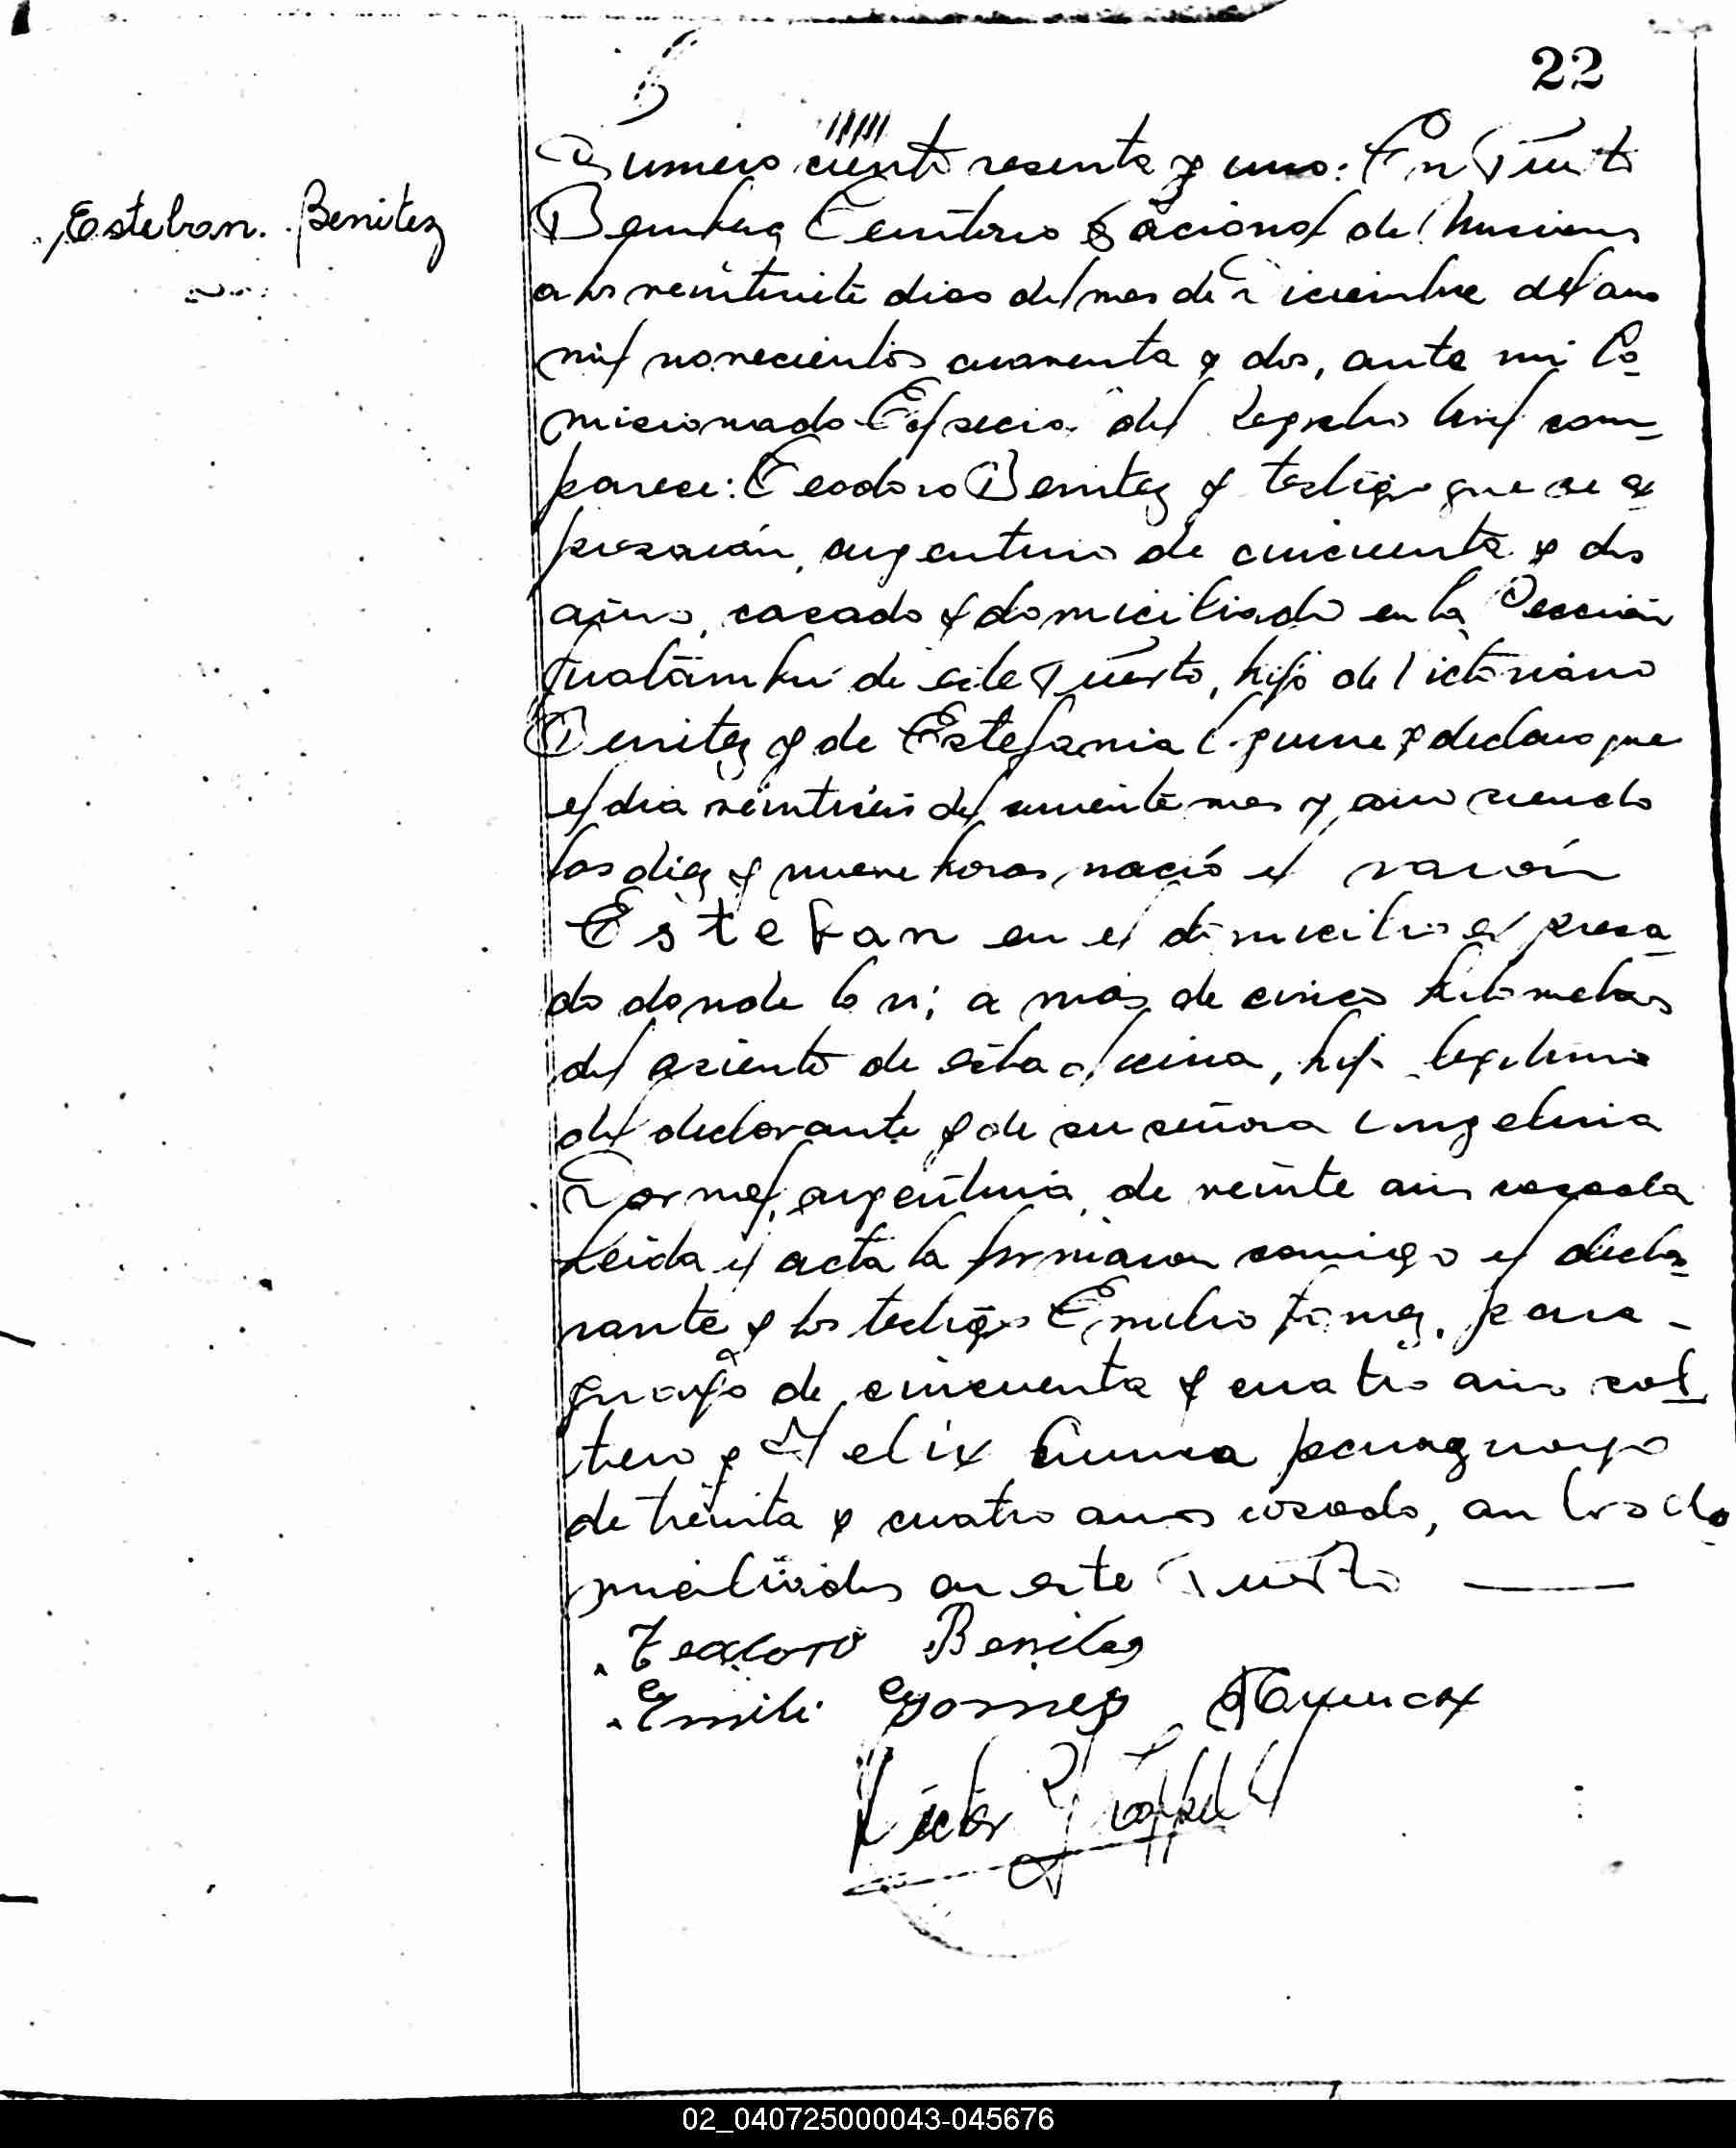 22
Esteban. Benitez
Numero ciento sesenta y uno: En Puerto
Bemberg Territorio Nacional de Misiones
a los veintisiete dias del mes de Diciembre del año
mil novecientos cuarenta y dos, ante mi Co-
micionado Especial del Registro Civil com-
parece: Teodoro Benitez y testigos que se ex-
presarán, argentino de cincuenta y dos
años, casado y domiciliado en la Seccion
Guatambú de este Puerto, hijo de Victoriano
Benitez y de Estefania Aguirre y declaro que
el dia del corriente mes y año siendo
las diez y nueve horas, nació el varón
Esteban en el domicilio expresa-
do donde lo vi; a más de cinco kilometros
del asiento de esta oficina, hijo legitimo
del declarante y de su señora Angelina
argentina, de veinte años casada
Leida el acta la firmaron conmigo el decla-
rante y los testigos Emilio Gómez, para-
guayo de cincuenta y cuatro años sol
tero y Felix paraguayo
de treinta y cuatro años casado, ambos do
miciliados en este Puerto
Teodoro Benites
Emili Gomes
Victor
02_040725000043-045676